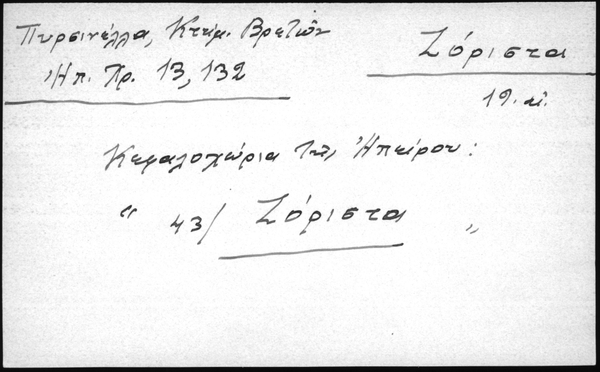 Πυρσινέλλα, Κτημ. Βρετιῶν
Ἠπ. Χρ. 13, 132
Ζόριστα
19. αἰ.
Κεφαλοχώρια τῆς Ἠπείρου:
“ 43/ Ζόριστα „